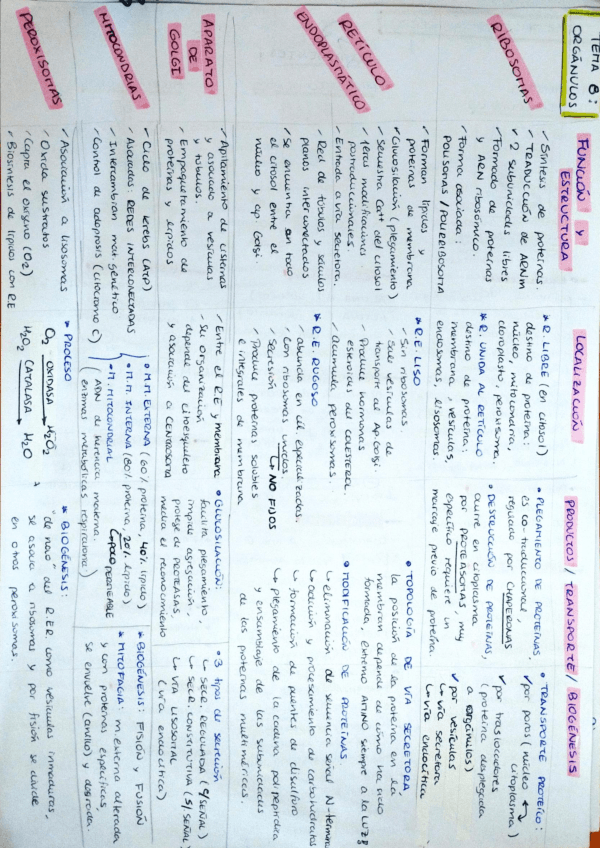 TEMA 8:
ORGÁNULOS
FUNCIÓN Y
ESTRUCTURA
LOCALIZACIÓN
PRODUCTOS / TRANSPORTE / BIOGÉNESIS
RIBOSOMAS
✓ Síntesis de proteínas.
✓ TRADUCCIÓN DE ARNm
✓ 2 subunidades libres
✓ Formado de proteínas
y ARN ribosómico.
✓ Forma asociada:
POLISOMA / POLIRRIBOSOMA
* R. LIBRE (en citosol)
destino de proteína:
núcleo, mitocondria,
cloroplasto, peroxisoma.
* R. UNIDA AL RETÍCULO
destino de proteína:
membrana, vesículas,
endosomas, lisosomas.
• PLEGAMIENTO DE PROTEÍNAS,
es co-traduccional,
regulado por CHAPERONAS
• DESTRUCCIÓN DE PROTEÍNAS,
ocurre en citoplasma
por PROTEASOMAS, muy
específico requiere un
marcaje previo de proteína.
• TRANSPORTE PROTEICO:
✓ por poros (núcleo
citoplasma)
✓ por traslocadores
(proteína desplegada
a orgánulos)
✓ por vesículas
↳ vía secretora
↳ vía endocítica
RETÍCULO
ENDOPLASMÁTICO
✓ Forman lípidos y
proteínas de membrana
✓ Glucosilación (plegamiento)
✓ Secuestra Ca++ del citosol
✓ 1eras modificaciones
postraduccionales.
✓ Entrada a vía secretora.
✓ Red de túbulos y sáculos
planos interconectados
✓ Se encuentra en todo
el citosol entre el
núcleo y ap Golgi.
* R.E. LISO
✓ Sin ribosomas.
✓ Sale vesículas de
transporte al Ap. Golgi.
✓ Produce hormonas
esteroides del COLESTEROL
✓ Acumula peroxisomas.
* R.E. RUGOSO
✓ abunda en cél especializadas.
✓ Con ribosomas unidos.
↳ NO FIJOS
✓ Secresión
✓ Produce proteínas solubles
e integrales de membrana
• TOPOLOGÍA DE VÍA SECRETORA
la posición de la proteína en la
membran depende de cómo ha sido
formada, extremo AMINO siempre a la LUZ
• MODIFICACIÓN DE PROTEÍNAS
↳ eliminación de secuencia señal N-terminal
↳ adición y procesamiento de carbohidratos
↳ formación de puentes de disulfuro
↳ plegamiento de la cadena polipeptídica
y ensamblaje de las subunidades
de las proteínas multiméricas.
APARATO
DE
GOLGI
✓ Apilamiento de cisternas
y asociado a vesículas
y túbulos.
✓ Empaquetamiento de
proteínas y lípidos
✓ Entre el RE y membrana
✓ Su organización
depende del citoesqueleto
y asociación a CENTROSOMA
• GLUCOSILACIÓN:
facilita plegamiento,
impide agregación,
protege de PROTEASAS,
media el reconocimiento
• 3 tipos de secreción
↳ SECR. REGULADA (c/ SEÑAL)
↳ SECR. CONSTITUTIVA (S/ SEÑAL)
↳ VÍA LISOSOMAL
(vía endocítica)
MITOCONDRIAS
✓ Ciclo de krebs (ATP)
✓ Asociadas: REDES INTERCONECTADAS
✓ Intercambian mat. genético
✓ Control de apoptosis (citocromo C)
• M.M. EXTERNA (60% proteína 40% lípido)
• M.M. INTERNA (80% proteína, 20% lípido)
↳ poco PERMEABLE
• M. MITOCONDRIAL
ADN de herencia materna.
enzimas metabólicas respiratoria
* BIOGÉNESIS: FISIÓN y FUSIÓN
* MITOFAGIA: m. externa alterada
y con proteínas específicas,
se envuelve (anillo) y degrada.
PEROXISOMAS
✓ Asociación a lisosomas
✓ Oxida sustratos
✓ Capta el oxígeno (O2)
✓ Biosíntesis de lípidos con RE
* PROCESO
O2 OXIDASA → H2O2
H2O2 CATALASA → H2O
* BIOGÉNESIS:
"de novo" del R.E.R como vesículas inmaduras,
se asocia a ribosomas y por fisión se divide
en otros peroxisomas.